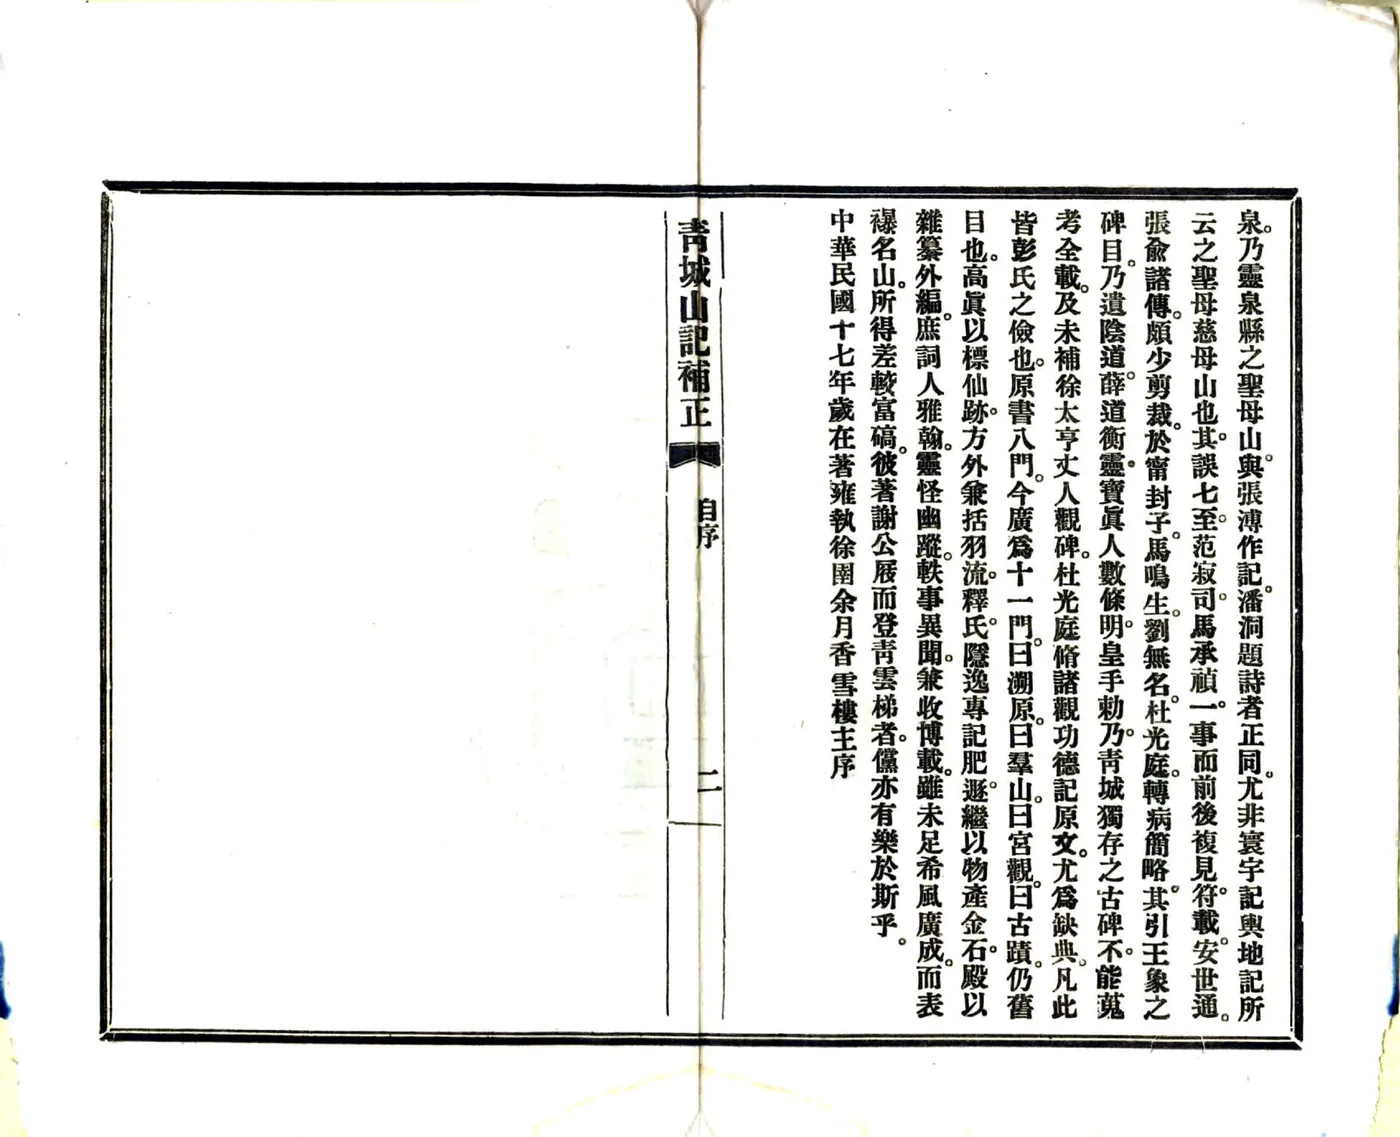 泉。乃靈泉縣之聖母山。與張溥作記。潘洞題詩者正同。尤非寰宇記輿地記所
云之聖母慈母山也。其誤七。至范寂。司馬承禎。一事而前後複見。符載。安世通。
張兪諸傳。頗少剪裁。於甯封子。馬鳴生。劉無名。杜光庭。轉病簡略。其引王象之
碑目。乃遺陰道。薛道衡。靈寶眞人數條。明皇手勅。乃靑城獨存之古碑。不能蒐
考全載。及未補徐太亨丈人觀碑。杜光庭脩諸觀功德記原文。尤爲缺典。凡此
皆彭氏之儉也。原書八門。今廣爲十一門。曰溯原。曰羣山。曰宮觀。曰古蹟。仍舊
目也。高眞以標仙跡。方外兼括羽流。釋氏。隱逸專記肥遯。繼以物產金石。殿以
雜纂外編。庶詞人雅翰。靈怪幽蹤。軼事異聞。兼收博載。雖未足希風廣成。而表
襮名山。所得差較富碻。彼著謝公屐而登靑雲梯者。儻亦有樂於斯乎。
中華民國十七年歲在著雍執徐圉余月香雪樓主序
靑城山記補正
自序
二